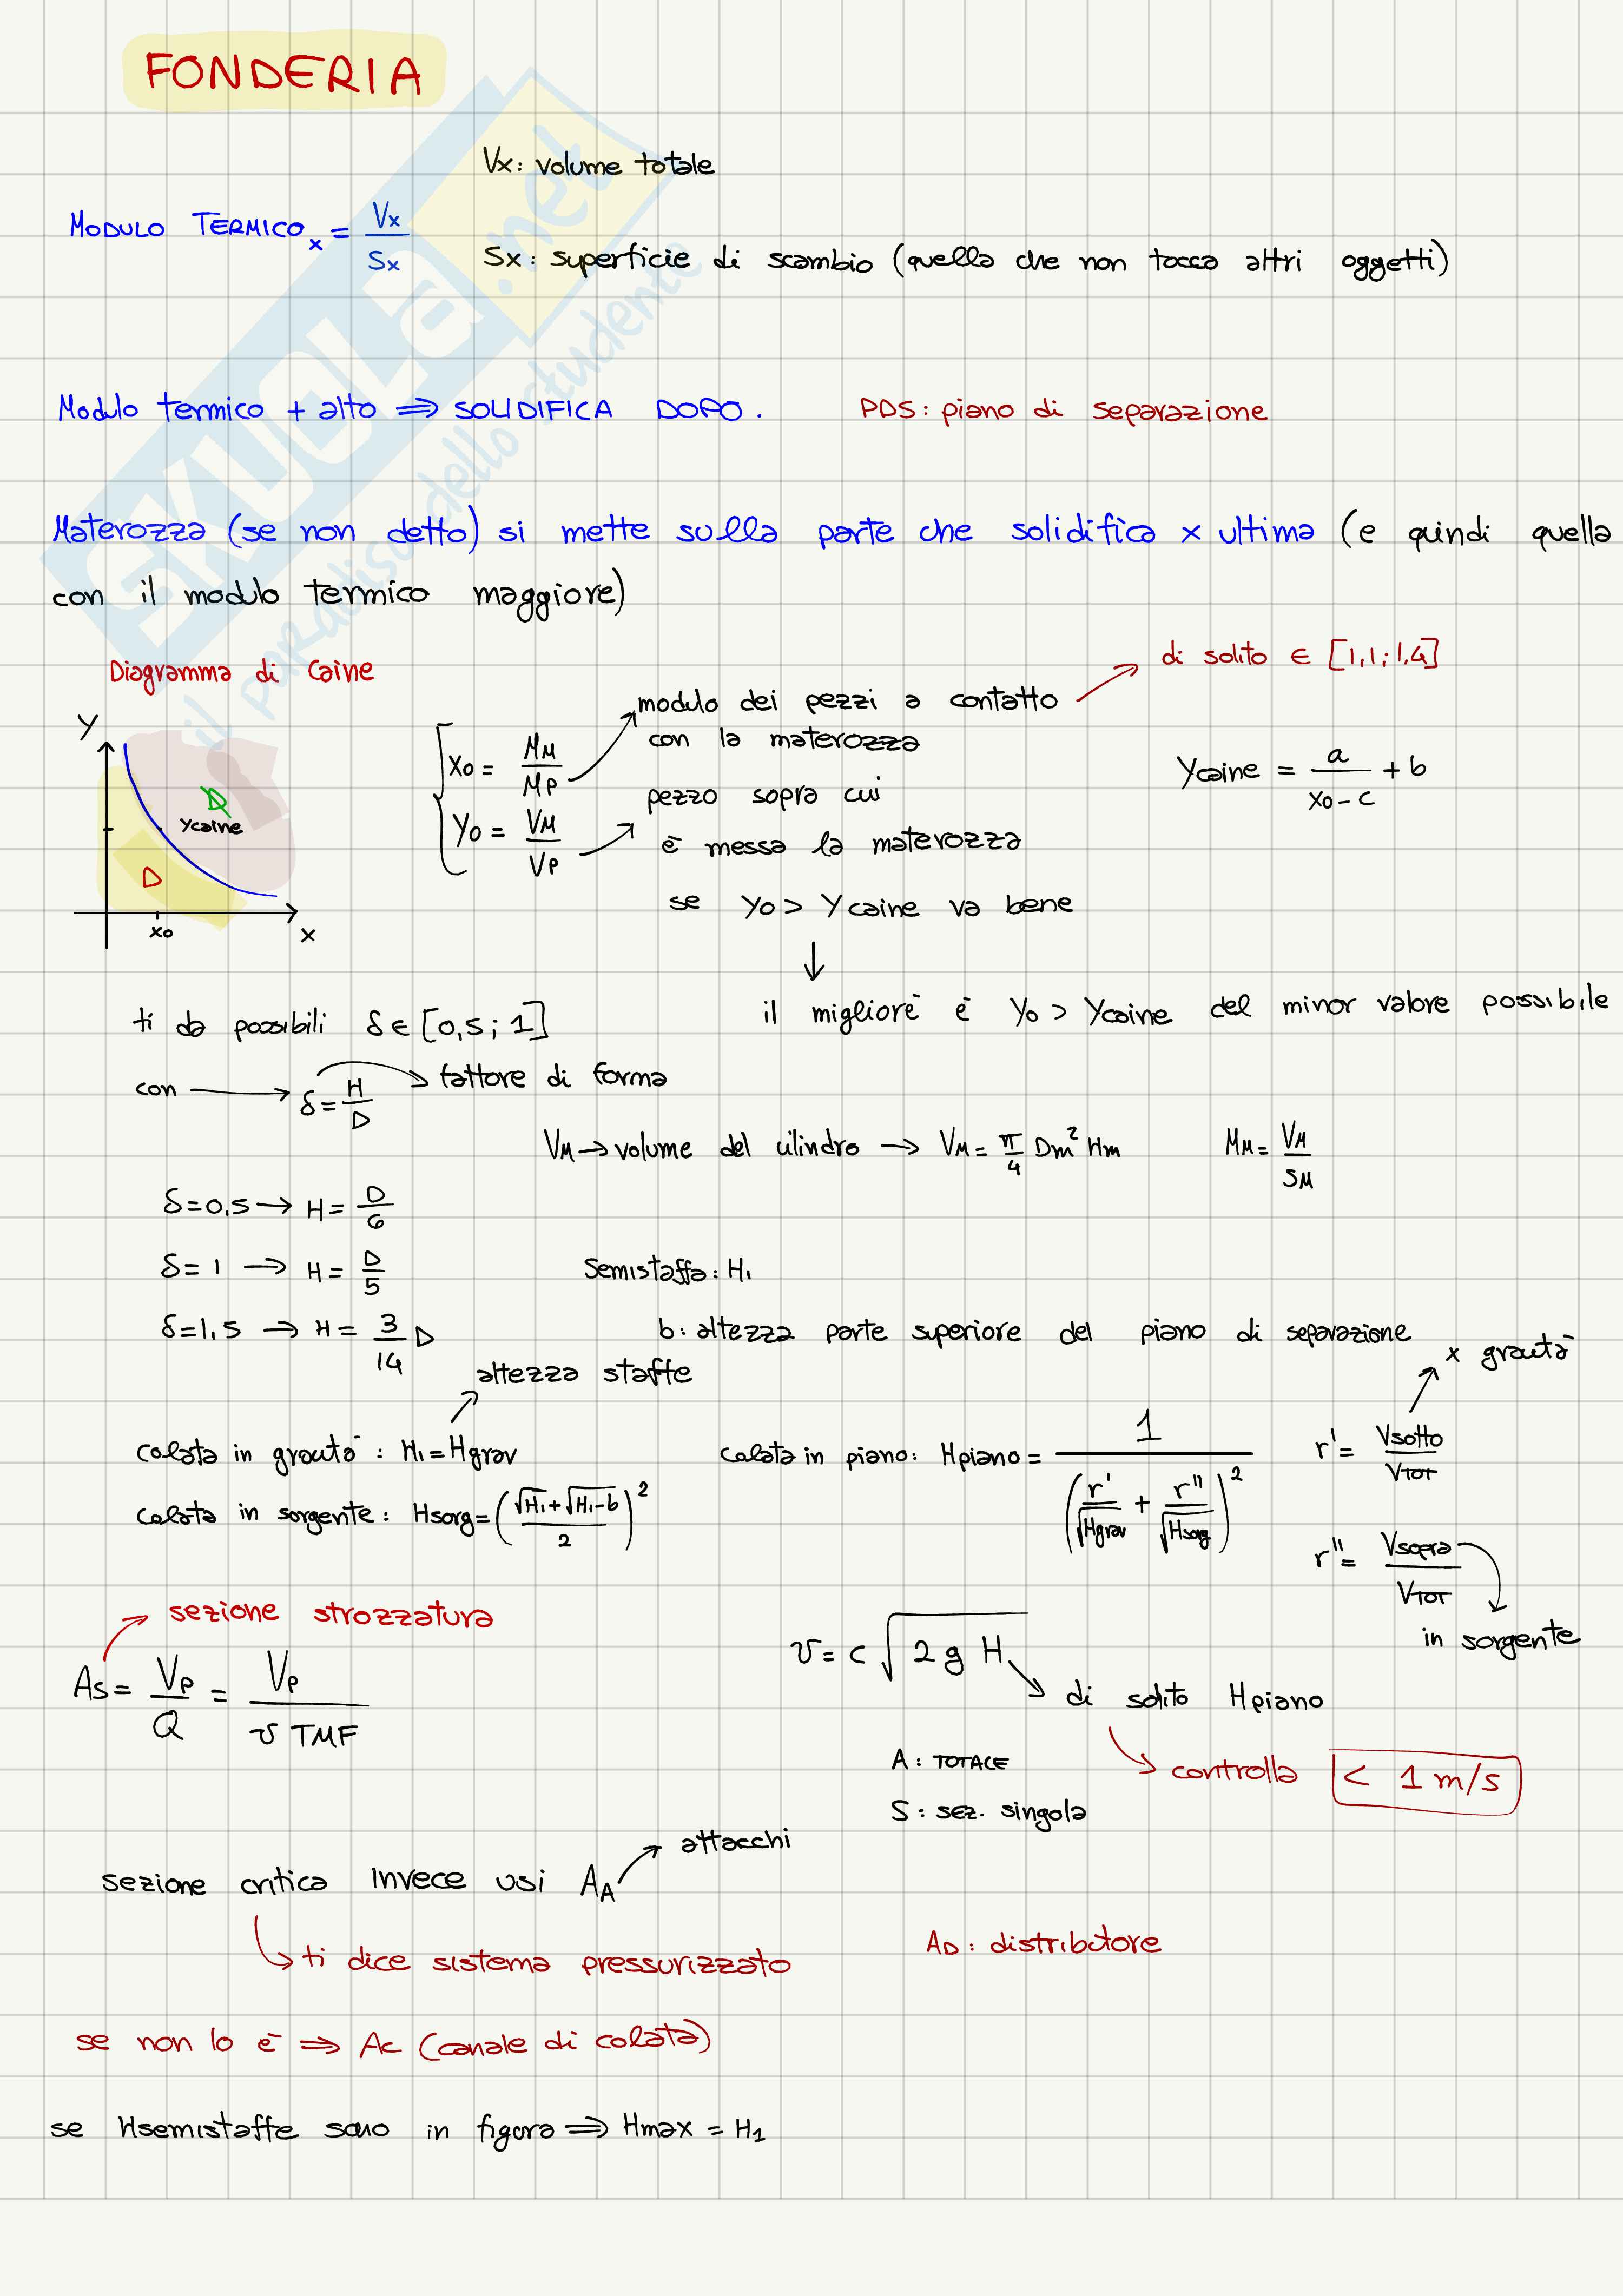 FONDERIA
Vx: volume totale
MODULO TERMICO x = Vx / Sx
Sx: superficie di scambio (quella che non tocca altri oggetti)
Modulo termico + alto ⇒ SOLIDIFICA DOPO.
PDS: piano di separazione
Materozza (se non detto) si mette sulla parte che solidifica x ultima (e quindi quella
con il modulo termico maggiore)
Diagramma di Caine
di solito ∈ [1,1; 1,4]
modulo dei pezzi a contatto
con la materozza
Y
X0 = MM / MP
Ycaine = a / (x0 - c) + b
pezzo sopra cui
D
Ycaine
Y0 = VM / VP
è messa la materozza
D
se Y0 > Ycaine va bene
x0
x
↓
il migliore è Y0 > Ycaine del minor valore possibile
ti do possibili δ ∈ [0,5; 1]
con → δ = H / D → fattore di forma
VM → volume del cilindro → VM = π/4 Dm² Hm
MM = VM / SM
δ = 0,5 → H = D/6
δ = 1 → H = D/5
Semistaffa: H1
δ = 1,5 → H = 3/14 D
b: altezza parte superiore del piano di separazione
altezza staffe
x gravità
Colata in gravità: H1 = Hgrav
Colata in piano: Hpiano = 1 / (r'/√Hgrav + r''/√Hsorg)²
r' = Vsotto / VTOT
Colata in sorgente: Hsorg = ((√H1 + √H1-b) / 2)²
r'' = Vsopra / VTOT
in sorgente
sezione strozzatura
As = VP / Q = VP / (v TMF)
v = c √2 g H
di solito Hpiano
A: TOTALE
controlla < 1 m/s
S: sez. singola
attacchi
sezione critica invece usi AA
ti dice sistema pressurizzato
AD: distributore
se non lo è ⇒ Ac (canale di colata)
se Hsemistaffe sono in figura ⇒ Hmax = H1
SKUOLA.net
il paradiso dello studente